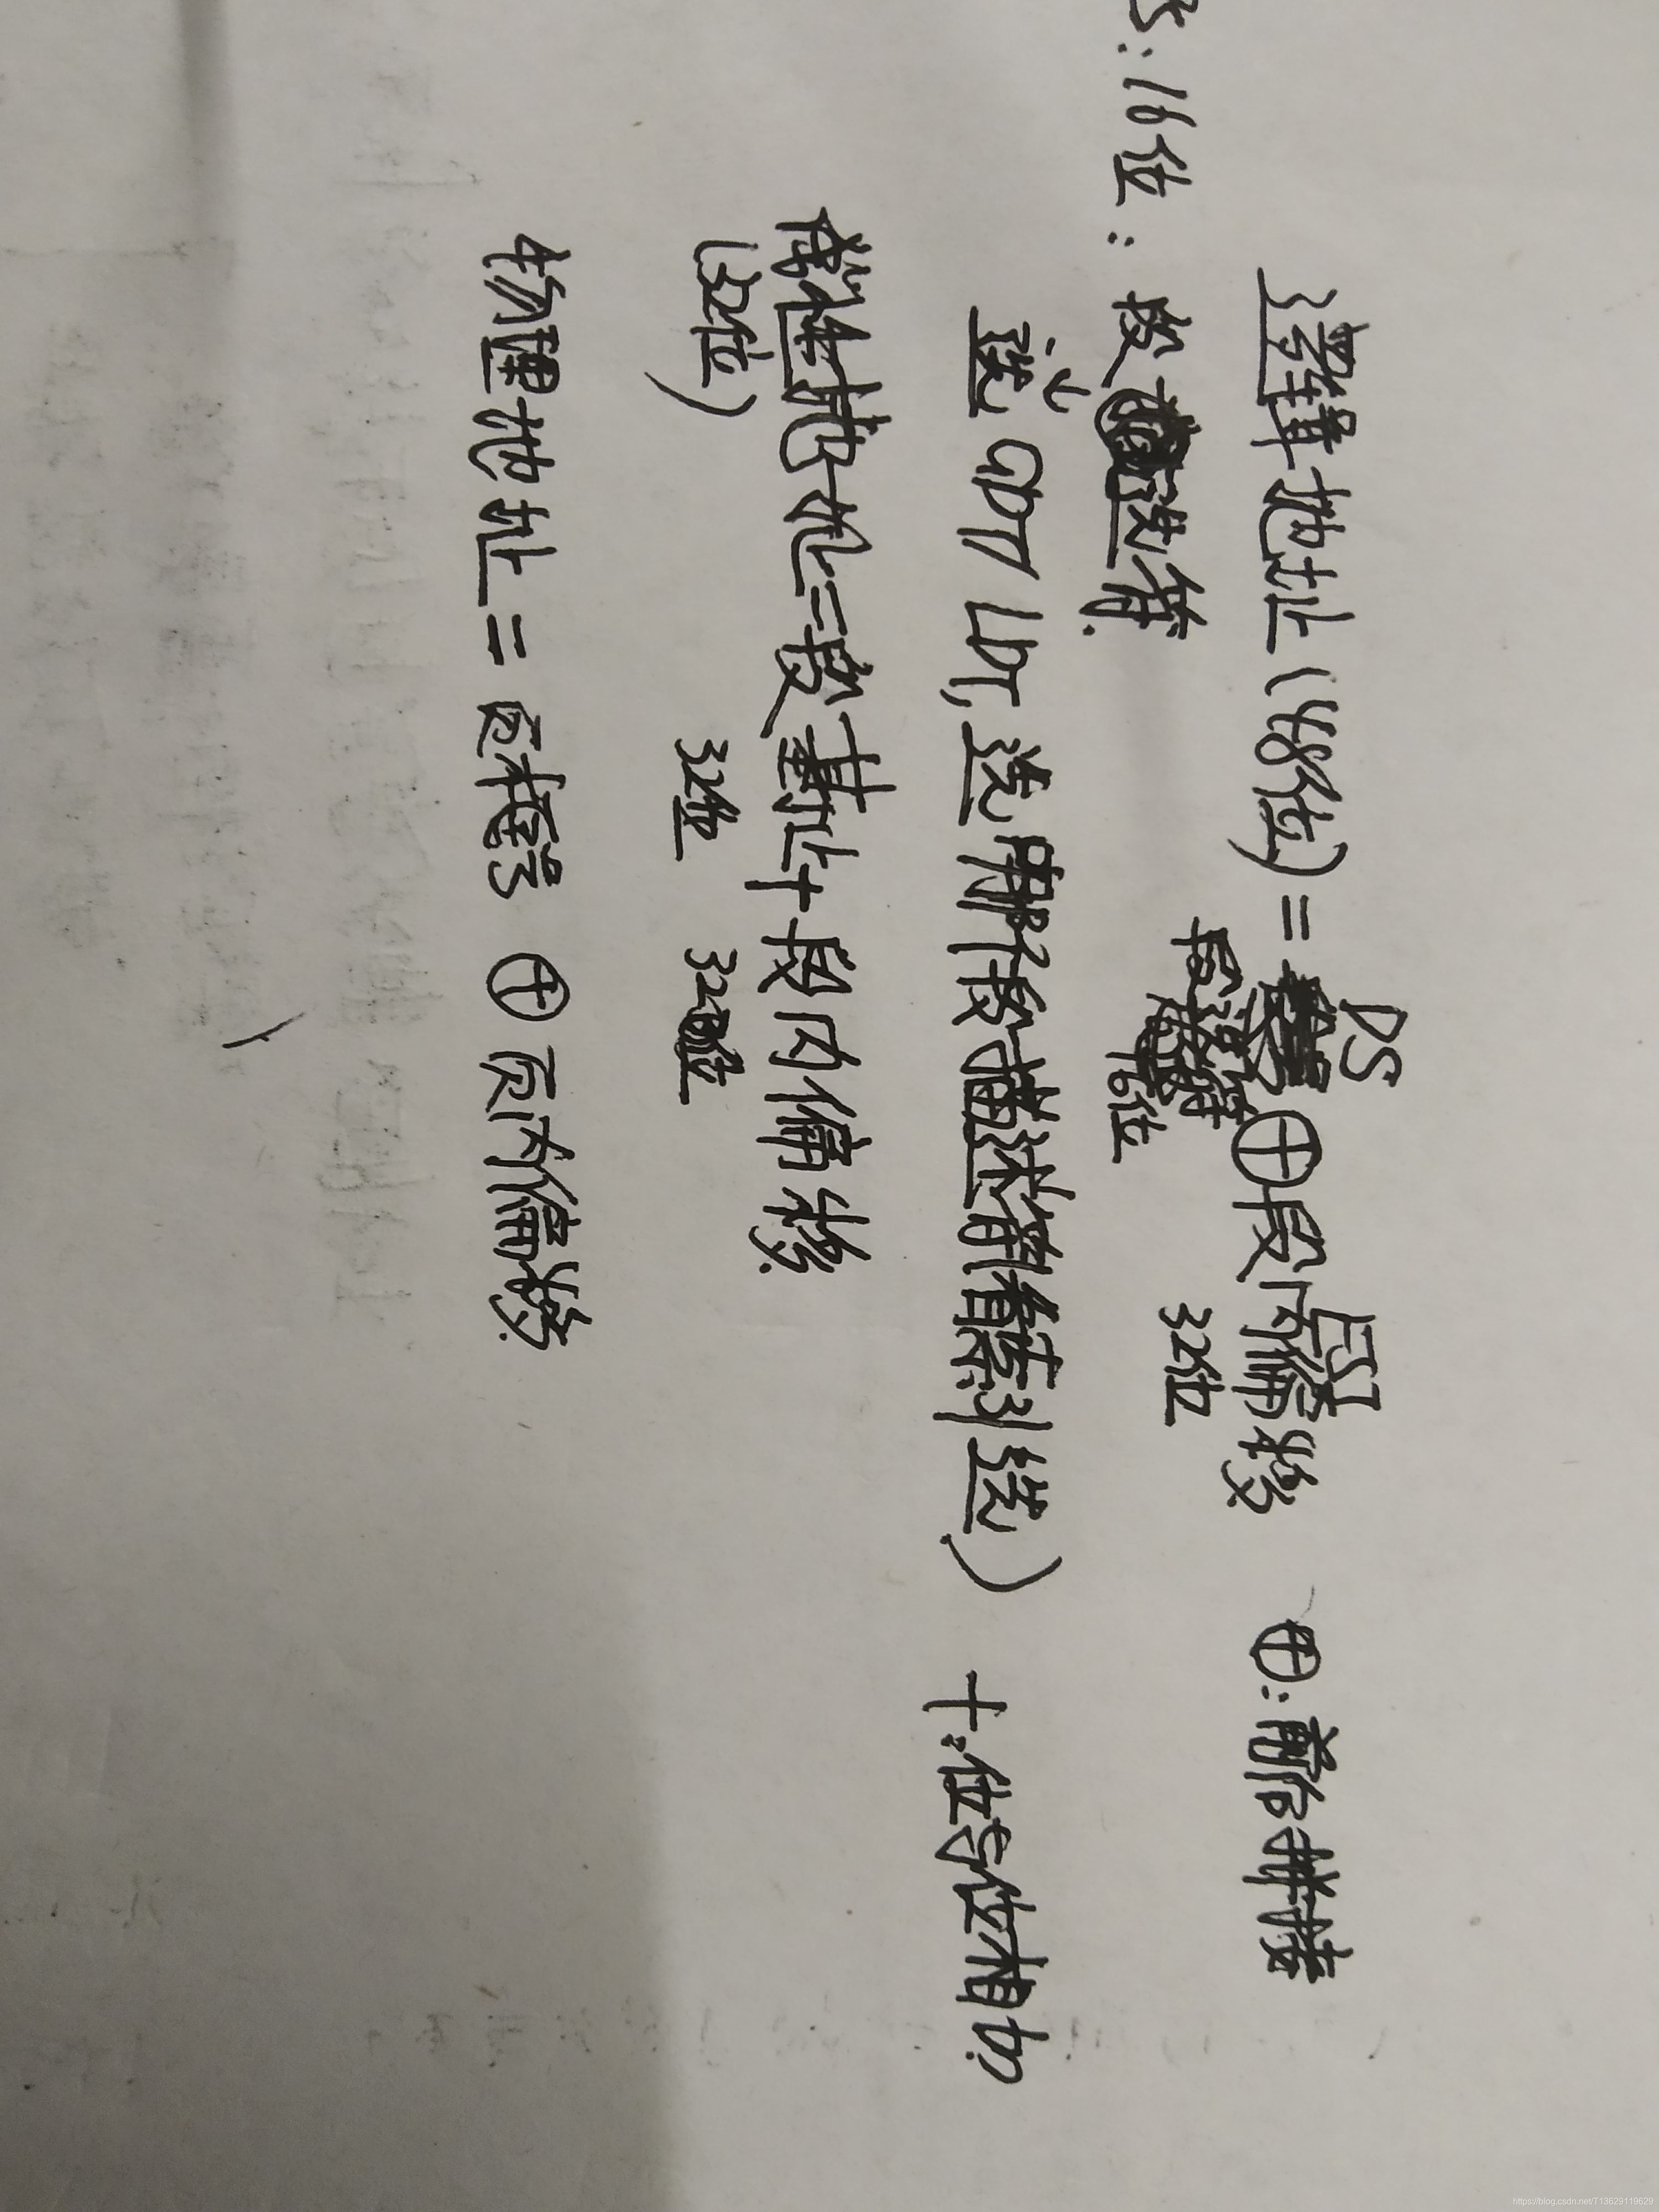 DS ESI
逻辑地址(48位)= ⊕段内偏移 ⊕:前后拼接
段选择符 16位 32位
DS:16位:段选择符.
选 GDT LDT,选用那个段描述符(索引选) +:位与位相加
线性地址=段基址+段内偏移
(32位) 32位 32位
物理地址=页框号⊕页内偏移
https://blog.csdn.net/T13629119629